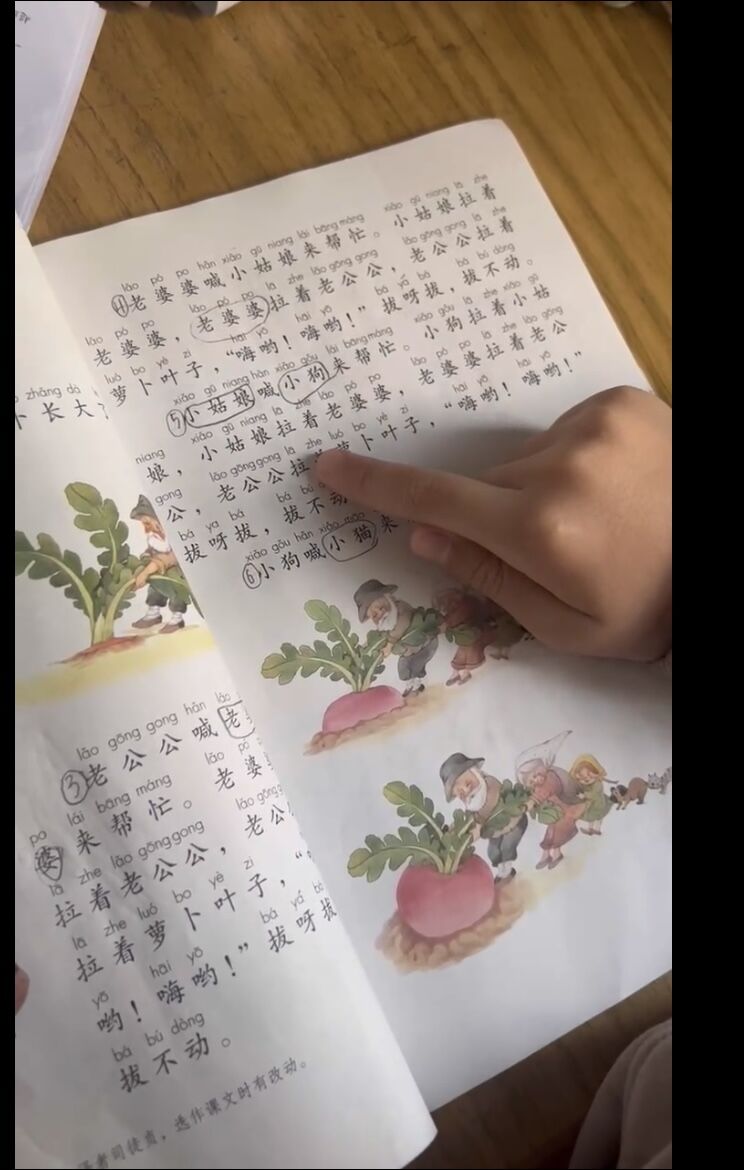 zhǎng dà
卜长大
lǎo gōng gong hǎn lǎo
③老公公喊老
po lái bāng máng lǎo pó
婆来帮忙。老婆
lā zhe lǎo gōng gong lǎo gōng
拉着老公公，老公
lā zhe luó bo yè zi
拉着萝卜叶子，“
yō hāi yō bá yá bá
哟！嗨哟！”拔呀拔
bá bú dòng
拔不动。
者司徒贞，选作课文时有改动。
lǎo pó po hǎn xiǎo gū niang lái bāng máng xiǎo gū niang lā zhe
④老婆婆喊小姑娘来帮忙。小姑娘拉着
lǎo pó po lǎo pó po lā zhe lǎo gōng gong lǎo gōng gong lā zhe
老婆婆，老婆婆拉着老公公，老公公拉着
luó bo yè zi hāi yō hāi yō bá ya bá bá bú dòng
萝卜叶子，“嗨哟！嗨哟！”拔呀拔，拔不动。
xiǎo gū niang hǎn xiǎo gǒu lái bāng máng xiǎo gǒu lā zhe xiǎo gū
⑤小姑娘喊小狗来帮忙。小狗拉着小姑
niang xiǎo gū niang lā zhe lǎo pó po lǎo pó po lā zhe lǎo gōng
娘，小姑娘拉着老婆婆，老婆婆拉着老公
gong lǎo gōng gong lā zhe luó bo yè zi hāi yō hāi yō
公，老公公拉着萝卜叶子，“嗨哟！嗨哟！”
bá ya bá bá bú
拔呀拔，拔不动
xiǎo gǒu hǎn xiǎo māo
⑥小狗喊小猫来